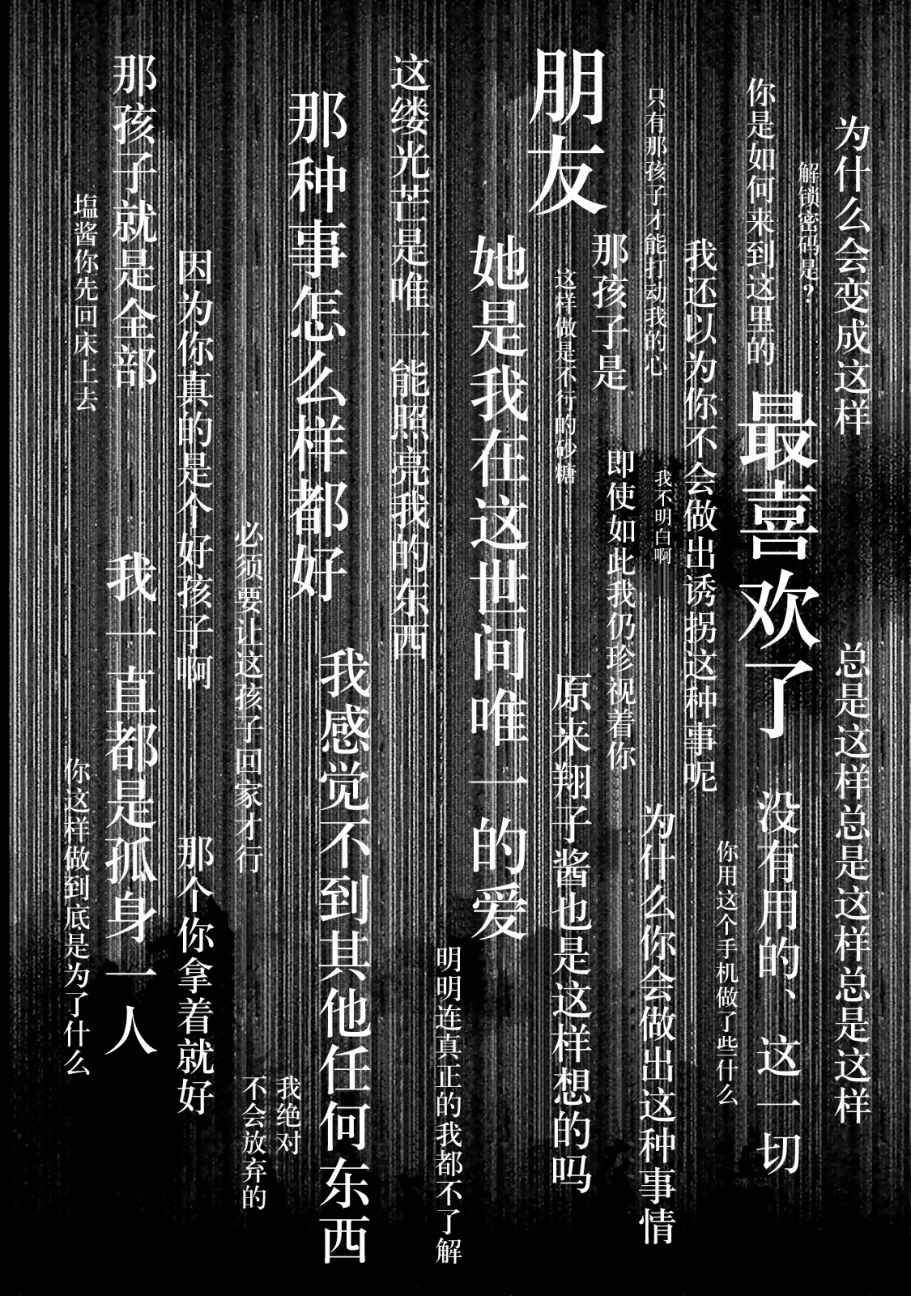 为什么会变成这样
总是这样总是这样总是这样
解锁密码是?
你是如何来到这里的
最喜欢了
没有用的、这一切
你用这个手机做了些什么
我还以为你不会做出诱拐这种事呢
只有那孩子才能打动我的心
我不明白啊
为什么你会做出这种事情
那孩子是
即使如此我仍珍视着你
朋友
这样做是不行的砂糖
原来翔子酱也是这样想的吗
她是我在这世间唯一的爱
明明连真正的我都不了解
这缕光芒是唯一能照亮我的东西
那种事怎么样都好
我感觉不到其他任何东西
我绝对
不会放弃的
必须要让这孩子回家才行
因为你真的是个好孩子啊
那个你拿着就好
那孩子就是全部
我一直都是孤身一人
塩酱你先回床上去
你这样做到底是为了什么